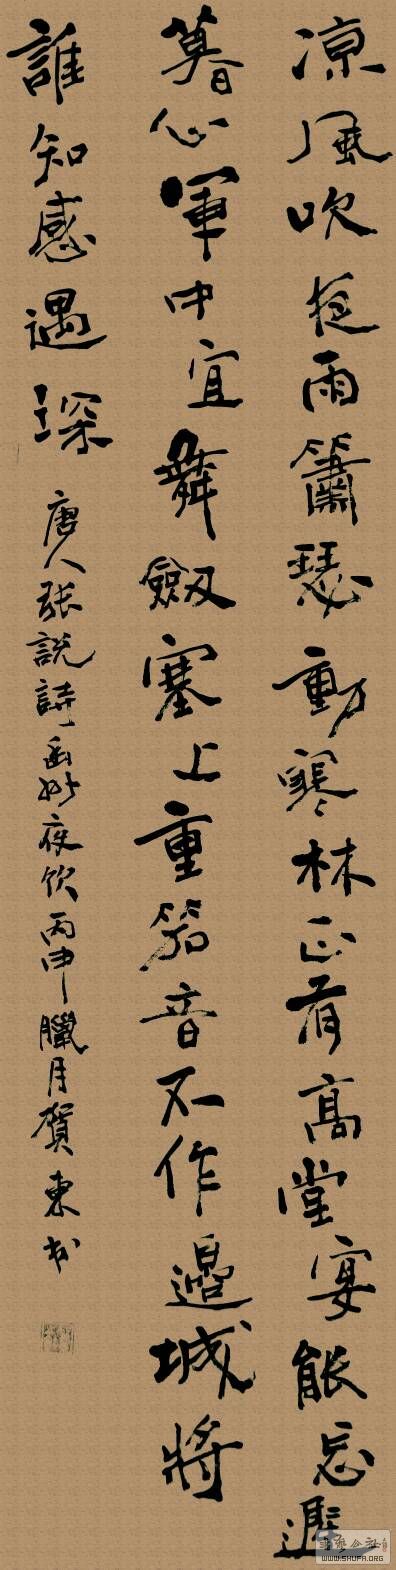 凉風吹夜雨簫瑟動寒林正有高堂宴能忘遲
暮心軍中宜舞劔塞上重笳音不作邊城將
誰知感遇深 唐人張說詩幽州夜飲丙申臘月賀東书
WWW.SHUFA.ORG